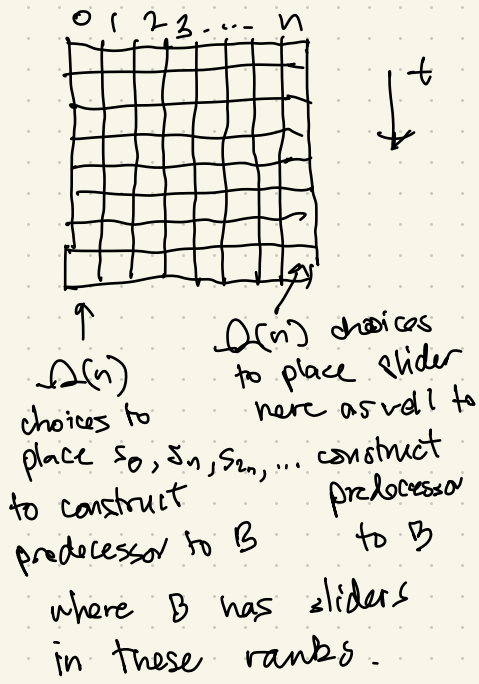 0 1 2 3 . . . . n
t
Ω(n)
choices to
place s₀, sₙ, s₂ₙ, ...
to construct
predecessor to B
Ω(n) choices
to place slider
here as well to
construct
predecessor
to B
where B has sliders
in these ranks.